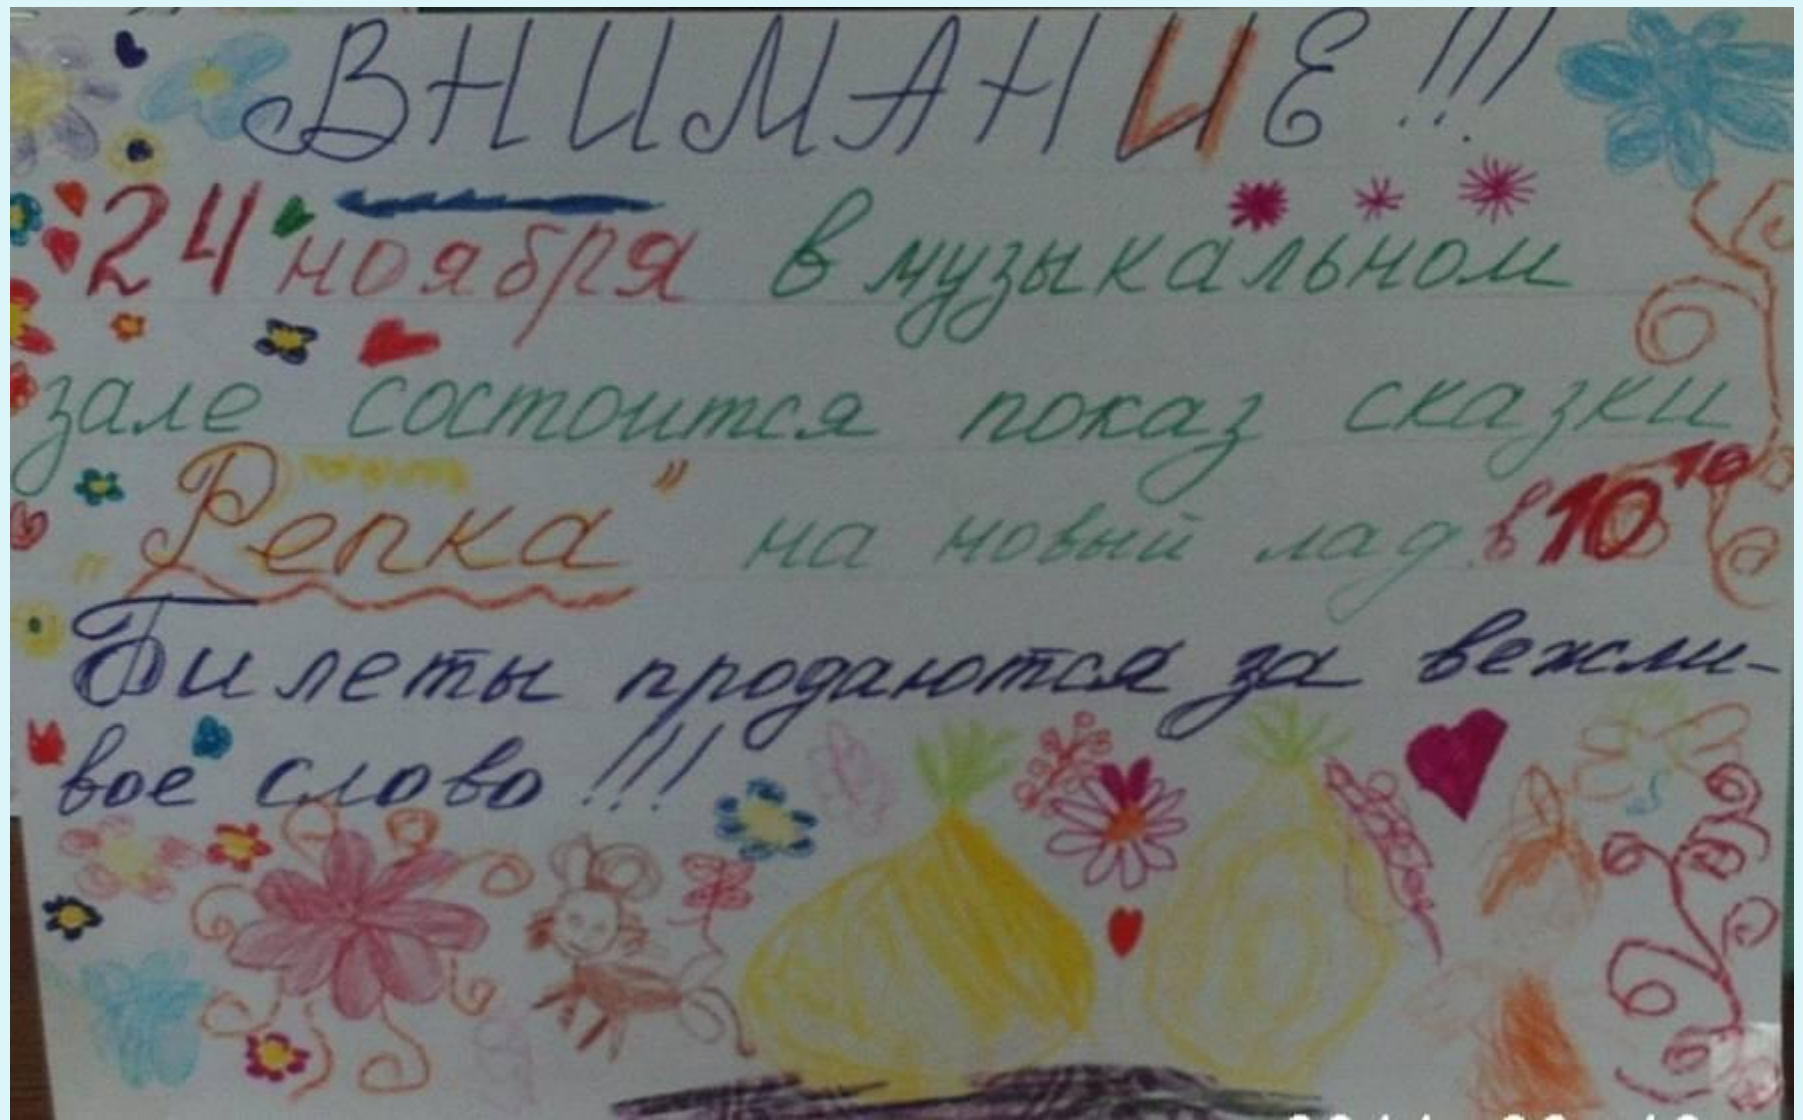 ВНИМАНИЕ!!!
24 ноября в музыкальном
зале состоится показ сказки
„Репка" на новый лад в 10¹⁰
Билеты продаются за вежли-
вое слово!!!